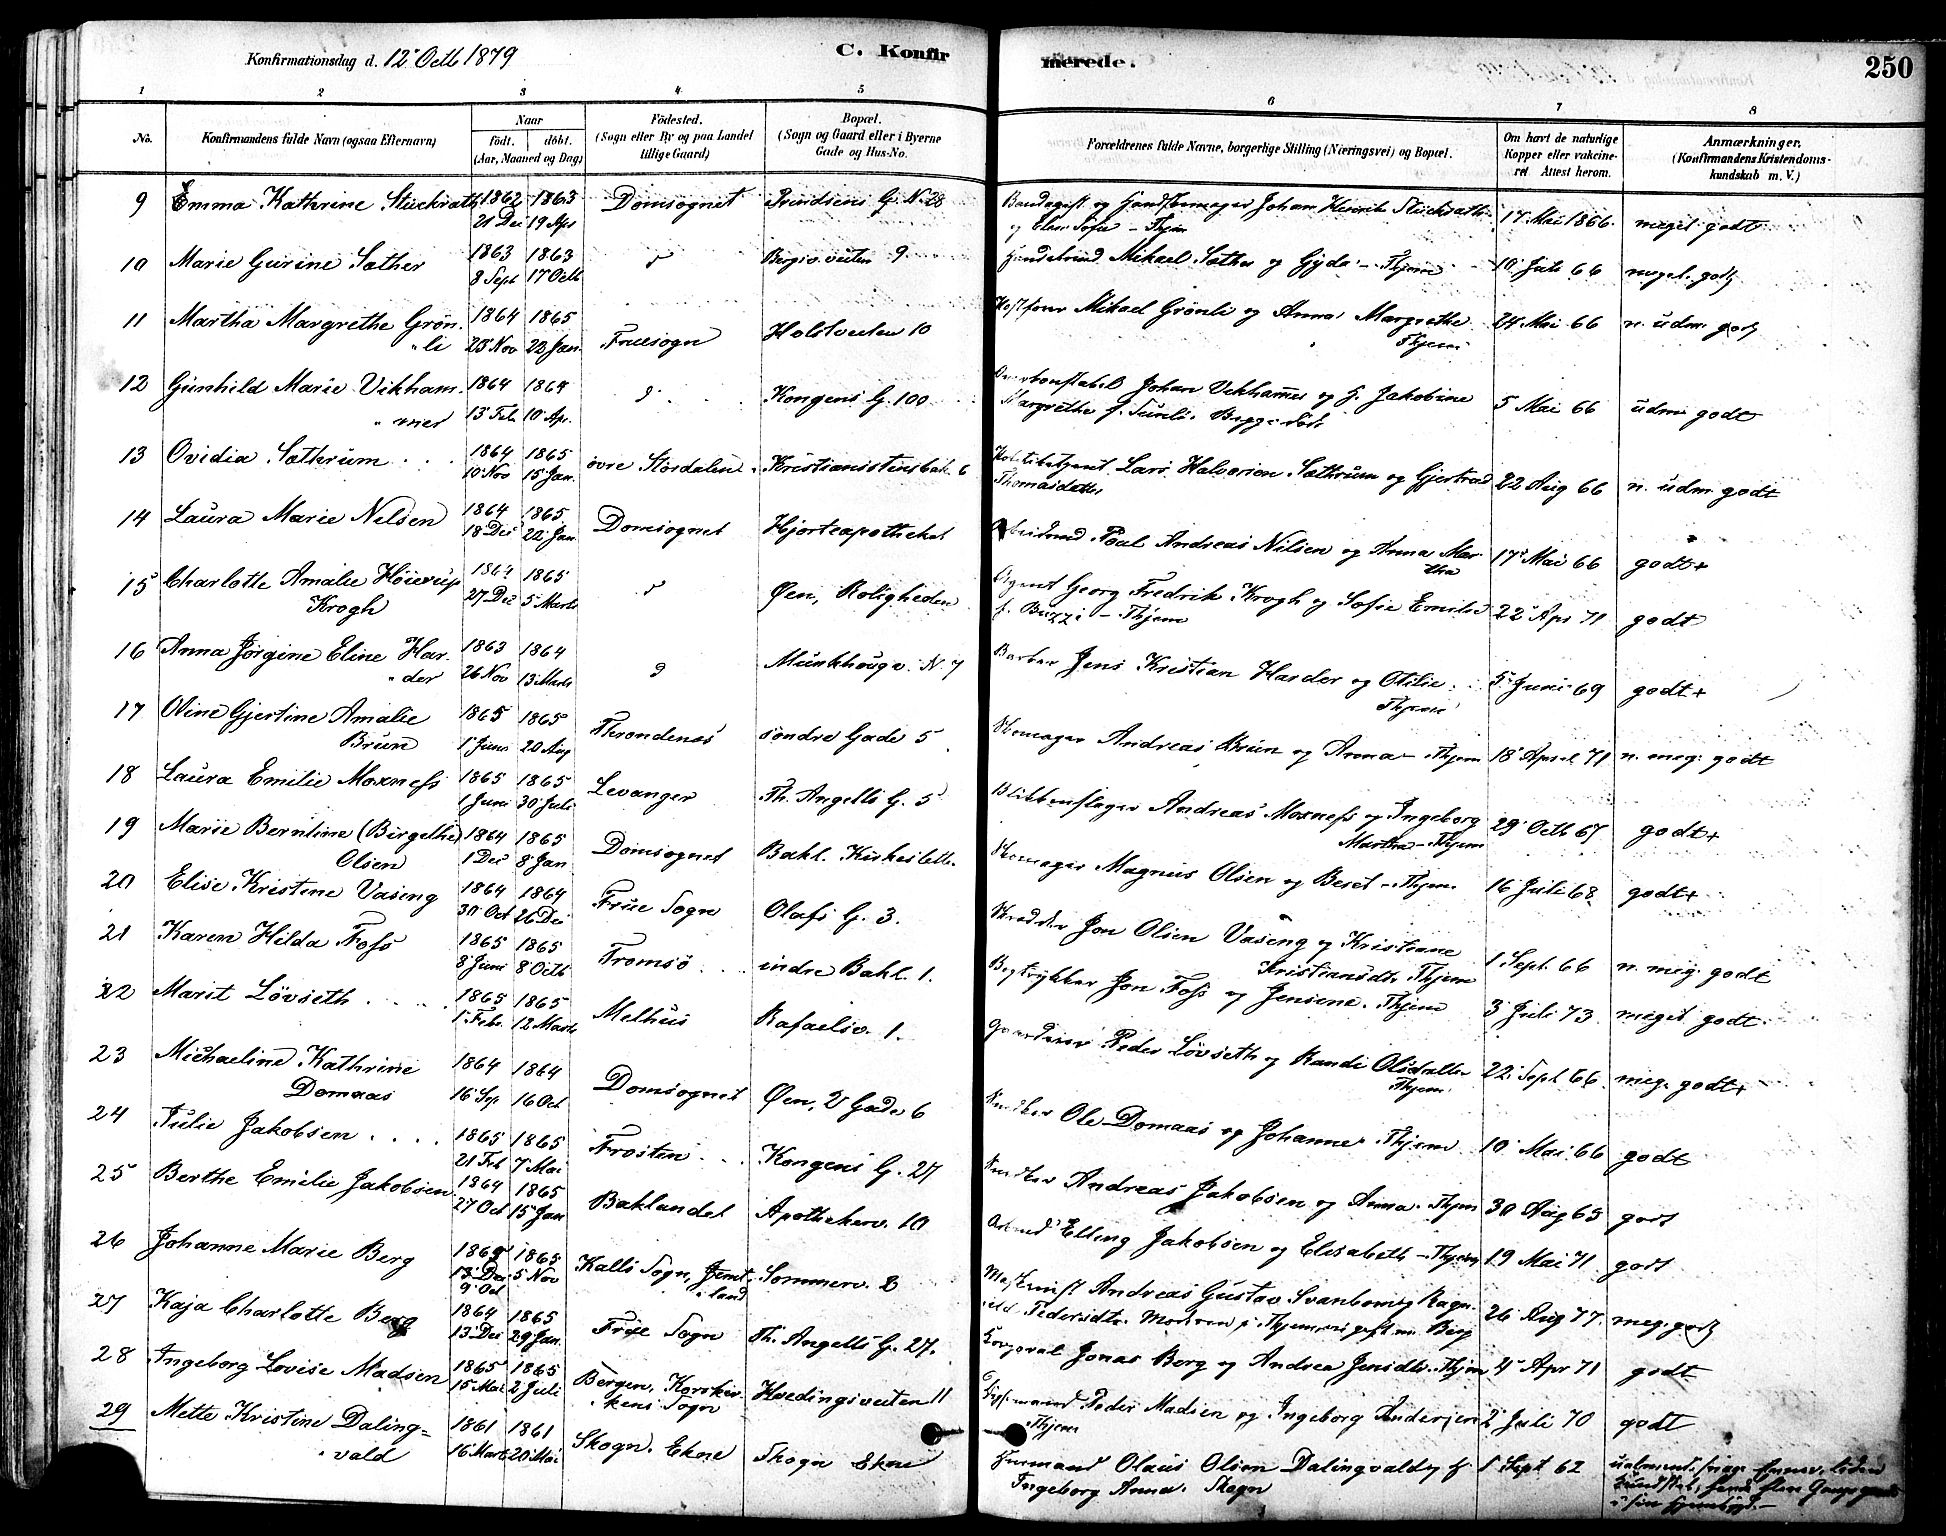 Konfirmationsdag d. 12' Octb 1879
C. Konfirmerede.
250
1 2 3 4 5 6 7 8
No.
Konfirmandens fulde Navn (ogsaa Efternavn)
Naar
födt. döbt.
(Aar, Maaned og Dag)
Födested.
(Sogn eller By og paa Landet
tillige Gaard)
Bopæl.
(Sogn og Gaard eller i Byerne
Gade og Hus-No.
Forældrenes fulde Navne, borgerlige Stilling (Næringsvei) og Bopæl.
Om havt de naturlige
Kopper eller vakcineret
Attest herom.
Anmærkninger.
(Konfirmandens Kristendoms-
kundskab m. V.)
9 Emma Kathrine Stückrath 1862 1863 Domsognet Prindsens G. N. 28 Bandagist og Handskemager Johan Henrik Stückrath 17 Mai 1866. meget godt
21 Dec 19 Apr og Elen Sofie - Thjem
10 Marie Gurine Sæther 1863 1863 Bergsv. veiten 9 Mikael Sæther og Gyda - Thjem 10 Juli 66 meget godt
8 Sept 17 Octb
11 Martha Margrethe Grön- 1864 1865 Fruesogn Holstveiten 10 Mikael Grönli og Anna Margrethe 24 Mai 66 n. udm. godt
li 23 Nov 22 Jan. Thjem
12 Gunhild Marie Vikham- 1864 1864 Kongens G. 100 Overkonstabel Johan Vikhammer og h. Jakobine 5 Mai 66 udm godt
mer 13 Feb. 10 Apr. Margrethe f.
13 Ovidia Sæthrum 1864 1865 övre Stördalen Kristianstensbak. 6 Lars Halvorsen Sæthrum og Gjertrud 22 Aug 66 n. udm godt
10 Nov 15 Jan. Thomasdatter
14 Laura Marie Nilsen 1864 1865 Domsognet Hjorteapotheket Arbeidsmd. Paal Andreas Nilsen og Anna Mar- 17 Mai 66 godt+
18 Dec 22 Jan tha
15 Charlotte Amalie Höierup 1864 1865 Øen, Roligheden Agent Georg Fredrik Krogh og Sofie Emilie 22 Apr 71 godt
Krogh 27 Dec 5 Marts f. Buzzi - Thjem
16 Anna Jörgine Eline Har- 1863 1864 Munkhougv. N. 7 Barber Jens Kristian Harder og Otilie 5 Juni 69 godt+
der 26 Nov 13 Marts Thjem
17 Oline Gjertine Amalie 1865 1865 Throndenes söndre Gade 5 Skomager Andreas Brun og Anna - Thjem 18 April 71 n. meg. godt
Brun 1 Juni 20 Aug
18 Laura Emilie Moxness 1865 1865 Levanger Th. Angells G. 5 Blikkenslager Andreas Moxness og Ingeborg 29 Octb 67 godt+
1 Juni 30 Juli Martha - Thjem
19 Marie Berntine (Birgethe) 1864 1865 Domsognet Bakl. Kirkeslette. Skomager Magnus Olsen og Beset - Thjem. 16 Juli 68 godt+
Olsen 1 Dec 8 Jan
20 Elise Kristine Vasing 1864 1864 Frue Sogn Olafs G. 3. Skrædder Jon Olsen Vasing og Kristiane 1 Sept. 66 n. meg. godt
30 Oct 26 Dec Kristiansdtr. Thjem
21 Karen Hilda Foss 1865 1865 Tromsö indre Bakl. 1. Bogtrykker Jon Foss og Jensine. Thjem 3 Juli 73 meget godt.
8 Juni 8 Octb
22 Marit Lövseth 1865 1865 Melhus Rafaelsv. 1. Peder Lövseth og Randi Olsdatter 22 Sept 66. meg. godt+
1 Febr. 12 Marts Thjem
23 Michaeline Kathrine 1864 1864 Domsognet Øen, 2 Gade 6 Ole Domaas og Johanne. Thjem 10 Mai 66 godt
Domaas 16 Sep 16 Oct
24 Julie Jakobsen 1865 1865 Frosten Kongens G. 27 Andreas Jakobsen og Anna. Thjem 30 Aug 65 godt
21 Feb 7 Mai
25 Berthe Emilie Jakobsen 1864 1865 Baklandet Apothekerv. 10 Elling Jakobsen og Elisabeth - Thjem 19 Mai 71 godt
27 Oct 15 Jan
26 Johanne Marie Berg 1865 1865 Kalls Sogn, Jemt- Sommerv. 2 Maskinist Andreas Gustav Svanbom og Ragn- 26 Aug 77. meg. godt
13 Dec 5 Nov land Pedersdtr. Moderen i Thjem gift m. Berg
9 Oct
27 Kaja Charlotte Berg 1864 1865 Frue Sogn Th. Angells G. 27. Korporal Jonas Berg og Andrea Jensdtr. Thjem 4 Apr 71 godt
13 Dec 29 Jan.
28 Ingeborg Lovise Madsen 1865 1865 Bergen, Korskir- Hvedingsveiten 11 Peder Madsen og Ingeborg Andersen 2 Juli 70 godt
15 Mai 2 Juli kens Sogn Thjem
29 Mette Kristine Daling- 1861 1861 Skogn. Ekne Skogn Ekne Husmand Olaus Olsen Dalingvald og h. 1 Sept 62
vald 16 Marts 20 Mai Ingeborg Anna. Skogn